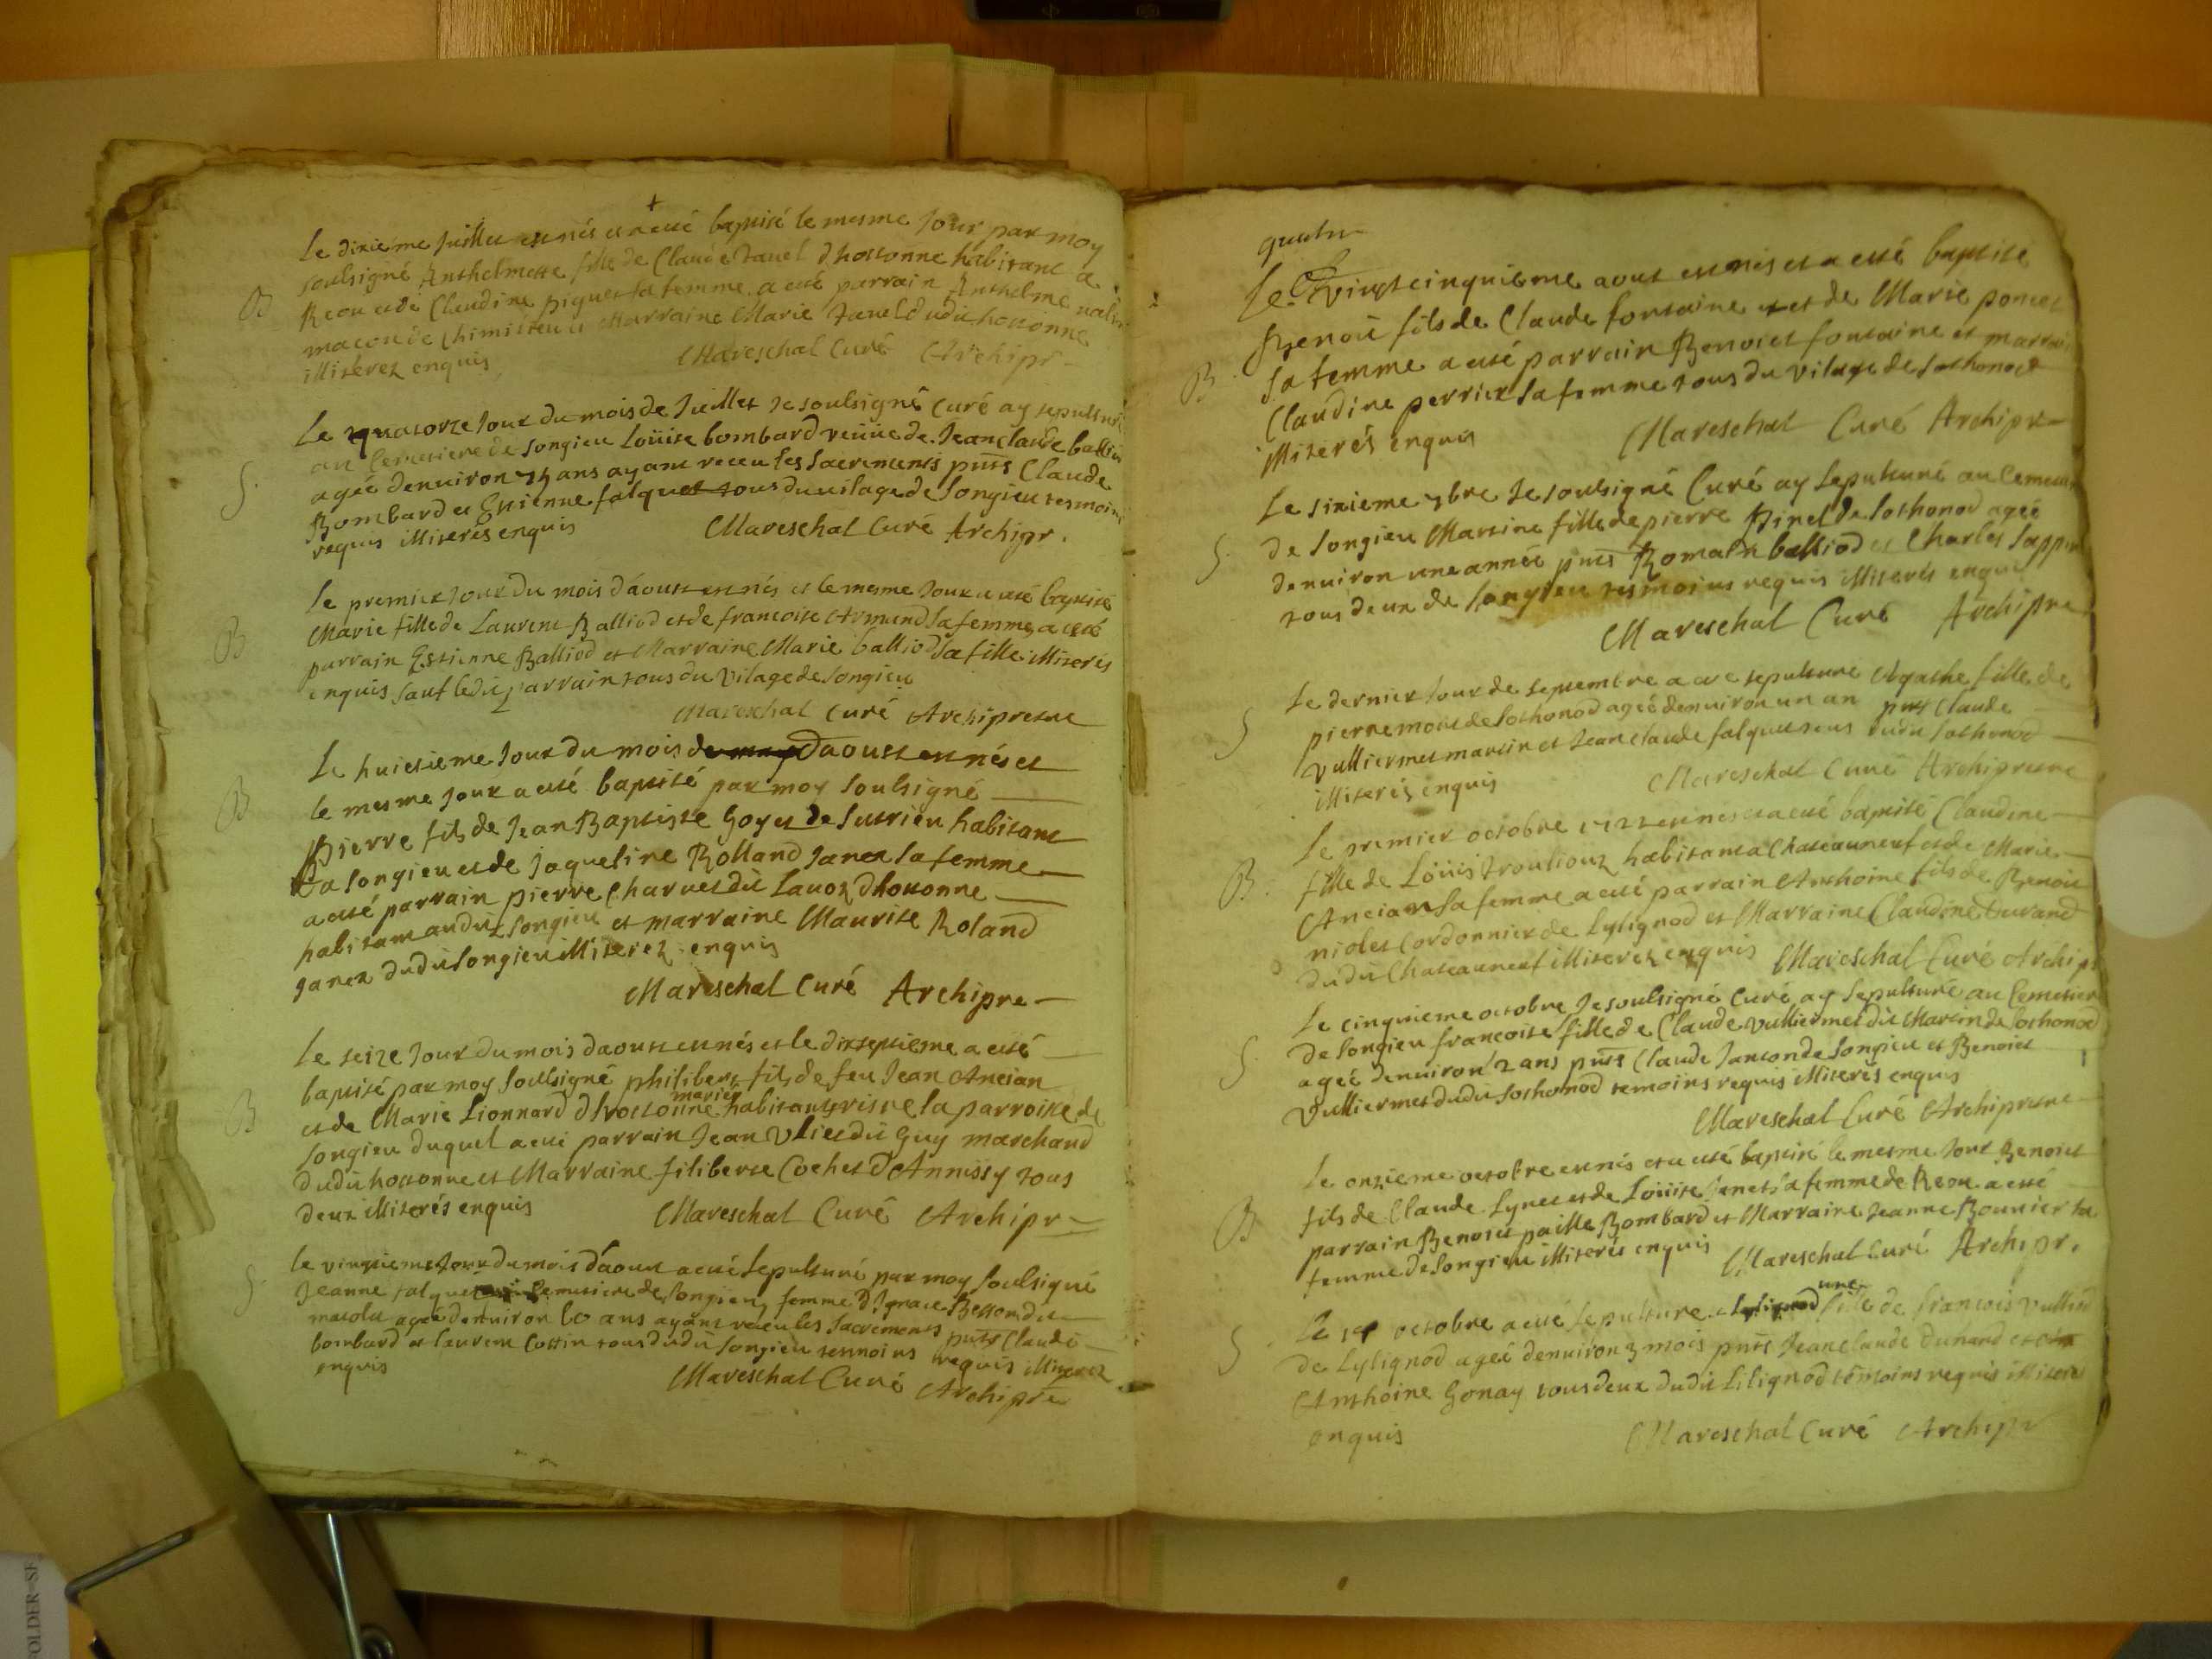 Le dixieme Juillet est nés et a esté baptisé le mesme Jour par moy
soulsigné Anthelmette fille de Claude Janel d hostonne habitant a
B Reou et de Claudine piguet sa femme a esté parrain Anthelme
macon de Chimilieu et Marraine Marie Janel dudit hostonne
illiterez enquis
Mareschal Curé Archipr
Le quatorze Jour du mois de Juillet Je soulsigné Curé ay sepulturé
au Cemetiere de songieu Loüise bombard veüue de Jean claude
S agée denuiron 75 ans ayant receu les sacrements pnts Claude
Bombard et Estienne falquet tous du uilage de songieu tesmoins
requis illiterés enquis
Mareschal Curé Archipr.
Le premier Jour du mois d'aoust est nés et le mesme Jour a esté baptisé
B Marie fille de Laurent Balliod et de francoise Armand sa femme, a esté
parrain Estienne Balliod et Marraine Marie balliod sa fille illiterés
enquis sauf ledit parrain tous du Vilage de songieu
Mareschal Curé Archipretre
Le huictieme Jour du mois de may d'aoust est nés et
B le mesme Jour a esté baptisé par moy soulsigné
Pierre fils de Jean Baptiste Goyet de Sutrieu habitant
a songieu et de Jaqueline Rolland Janex sa femme
a esté parrain pierre Charuet dit Lauoz d hotonne
habitant audit songieu et marraine Maurise Roland
Janex dudit songieu illiterez enquis
Mareschal Curé Archipre
Le seize Jour du mois daoust est nés et le dixseptieme a esté
baptisé par moy soulsigné philibert fils de feu Jean Ancian
mariés
B et de Marie Lionnard d hottonne habitant riere la parroisse de
songieu duquel a esté parrain Jean Vliet dit Guy marchand
dudit hotonne et Marraine filiberte Cochet d'Annissy tous
deux illiterés enquis
Mareschal Curé Archipr
Le vingtieme Jour du mois d'aoust a esté sepulturé par moy soulsigné
S Jeanne falquet cemetiere de songieu femme d Ignace Besson du
agée denuiron 60 ans ayant receu les sacrements pnts Claude
bombard et laurent Cottin tous dudit songieu tesmoins requis illiterez
enquis
Mareschal Curé Archipre
quatre
Le Vingt cinquieme aout est nés et a esté baptisé
Benoit fils de Claude fontaine et de Marie poncet
B sa femme a esté parrain Benoict fontaine et marraine
Claudine perrier sa femme tous du vilage de sothonod
illiterés enquis
Mareschal Curé Archipr
Le sixieme 7bre Je soulsigné Curé ay sepulturé au Cemetiere
S de songieu Martine fille de pierre Pinel de sothonod agée
denuiron une année pnts Romain balliod et Charles
tous deux de songieu tesmoins requis illiterés enquis
Mareschal Curé Archipre
Le dernier Jour de septembre a esté sepulture Agathe fille de
S pierre de sothonod agée denuiron un an pnts Claude
Vulliermet martin et Jean claude falquet tous dudit sothonod
illiterés enquis
Mareschal Curé Archipretre
Le premier octobre 1722 est nés et a esté baptisé Claudine
B fille de Loüis habitant a Chateauneuf et de Marie
Ancian sa femme a esté parrain Anthoine fils de Benoit
niolet Cordonnier de Lylignod et Marraine Claudine Durand
dudit Chateauneuf illiterez enquis
Mareschal Curé Archipr
Le cinquieme octobre Je soulsigné Curé ay sepulturé au Cemetiere
S de songieu francoise fille de Claude Vulliermet dit Martin de sothonod
agée denuiron 2 ans pnts Claude Janton de songieu et Benoict
Vulliermet dudit sothonod temoins requis illiterés enquis
Mareschal Curé Archipretre
Le onzieme octobre est nés et a esté baptisé le mesme Jour Benoict
B fils de Claude Lynet et de Loüise Jenet sa femme de Reou a esté
parrain Benoict paille Bombard et Marraine Jeanne Bounier sa
femme de songieu illiterés enquis
Mareschal Curé Archipr.
une
Le octobre a esté sepulture a Lylignod fille de francois Vulliod
S de Lylignod agée denuiron 3 mois pnts Jean claude Dunand et
Anthoine Gonay tous deux dudit Lilignod temoins requis illiteré
enquis
Mareschal Curé Archipr
OLDER-SF